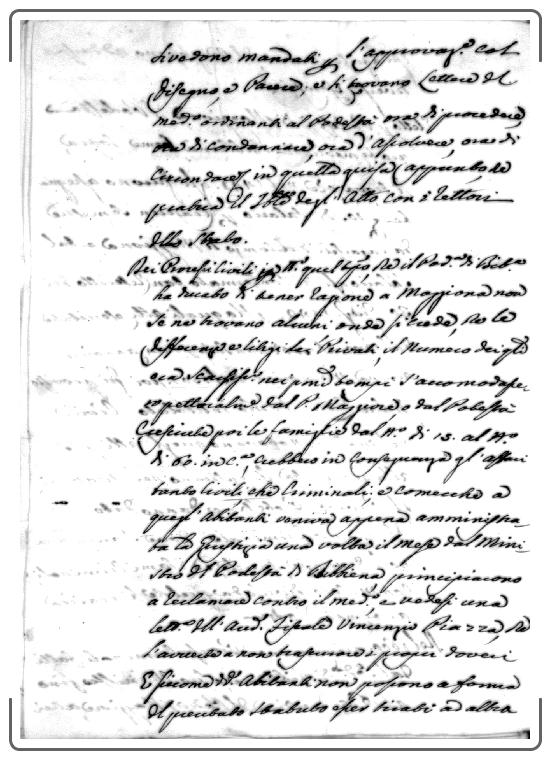 si vedono mandati p l'approvaz.e col
disegno e Parere, e si trovano Lettere del
med.o ordinanti al Podestà ora di procedere
ora di condannare, ora d'assolvere, ora di
in quella guisa appunto
pratica il degl' Atto con i Lettori
dello Stabo.
Nei Processi Civili p quel tpo che il Pod.a di Bib.a
ha ducato di tener ragione a Moggiona non
se ne trovano alcuni onde si crede, che le
differenze e litigi dei Privati, il Numero dei qli
era nei pmi tempi s'accomodasse
ro dal P. Maggiore o dal Podestà
Cresciute poi le famiglie dal N.o di 15. al N.o
di 60. in c.a crebbero in conseguenza gl' affari
tanto Civili che Criminali, e comecchè a
quegl' Abitanti veniva appena amministra
ta la Giustizia una volta il mese dal Mini
stro del Podestà di Bibbiena principiarono
a reclamare contro il med.o, e vedesi una
lett.a dell' Aud. Fiscale Vincenzio Piazza, che
l'avverte a non trascurare i propri doveri
E siccome d.i Abitanti non possono a forma
del precitato Statuto esser tirati ad altra